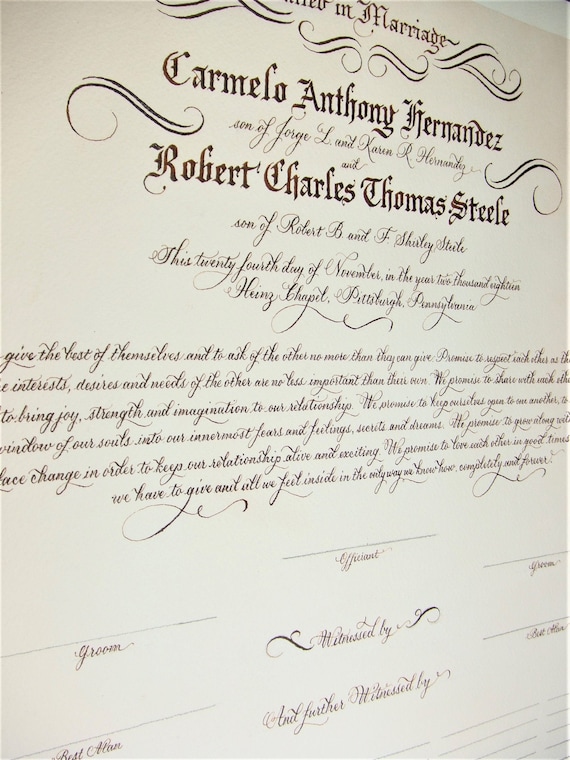 in Marriage
Carmelo Anthony Hernandez
son of Jorge L. and Karen R. Hernandez
and
Robert Charles Thomas Steele
son of Robert B. and F. Shirley Steele
This twenty fourth day of November, in the year two thousand eighteen
Heinz Chapel, Pittsburgh, Pennsylvania
give the best of themselves and to ask of the other no more than they can give. Promise to respect each other as
interests, desires and needs of the other are no less important than their own. We promise to share with each other
to bring joy, strength and imagination to our relationship. We promise to keep ourselves open to one another, to
window of our souls into our innermost fears and feelings, secrets and dreams. We promise to grow along with
change in order to keep our relationship alive and exciting. We promise to love each other in good times
we have to give and all we feel inside in the only way we know how, completely and forever.
Officiant
Groom
Groom
Witnessed by
Best Man
And further Witnessed by
Best Man